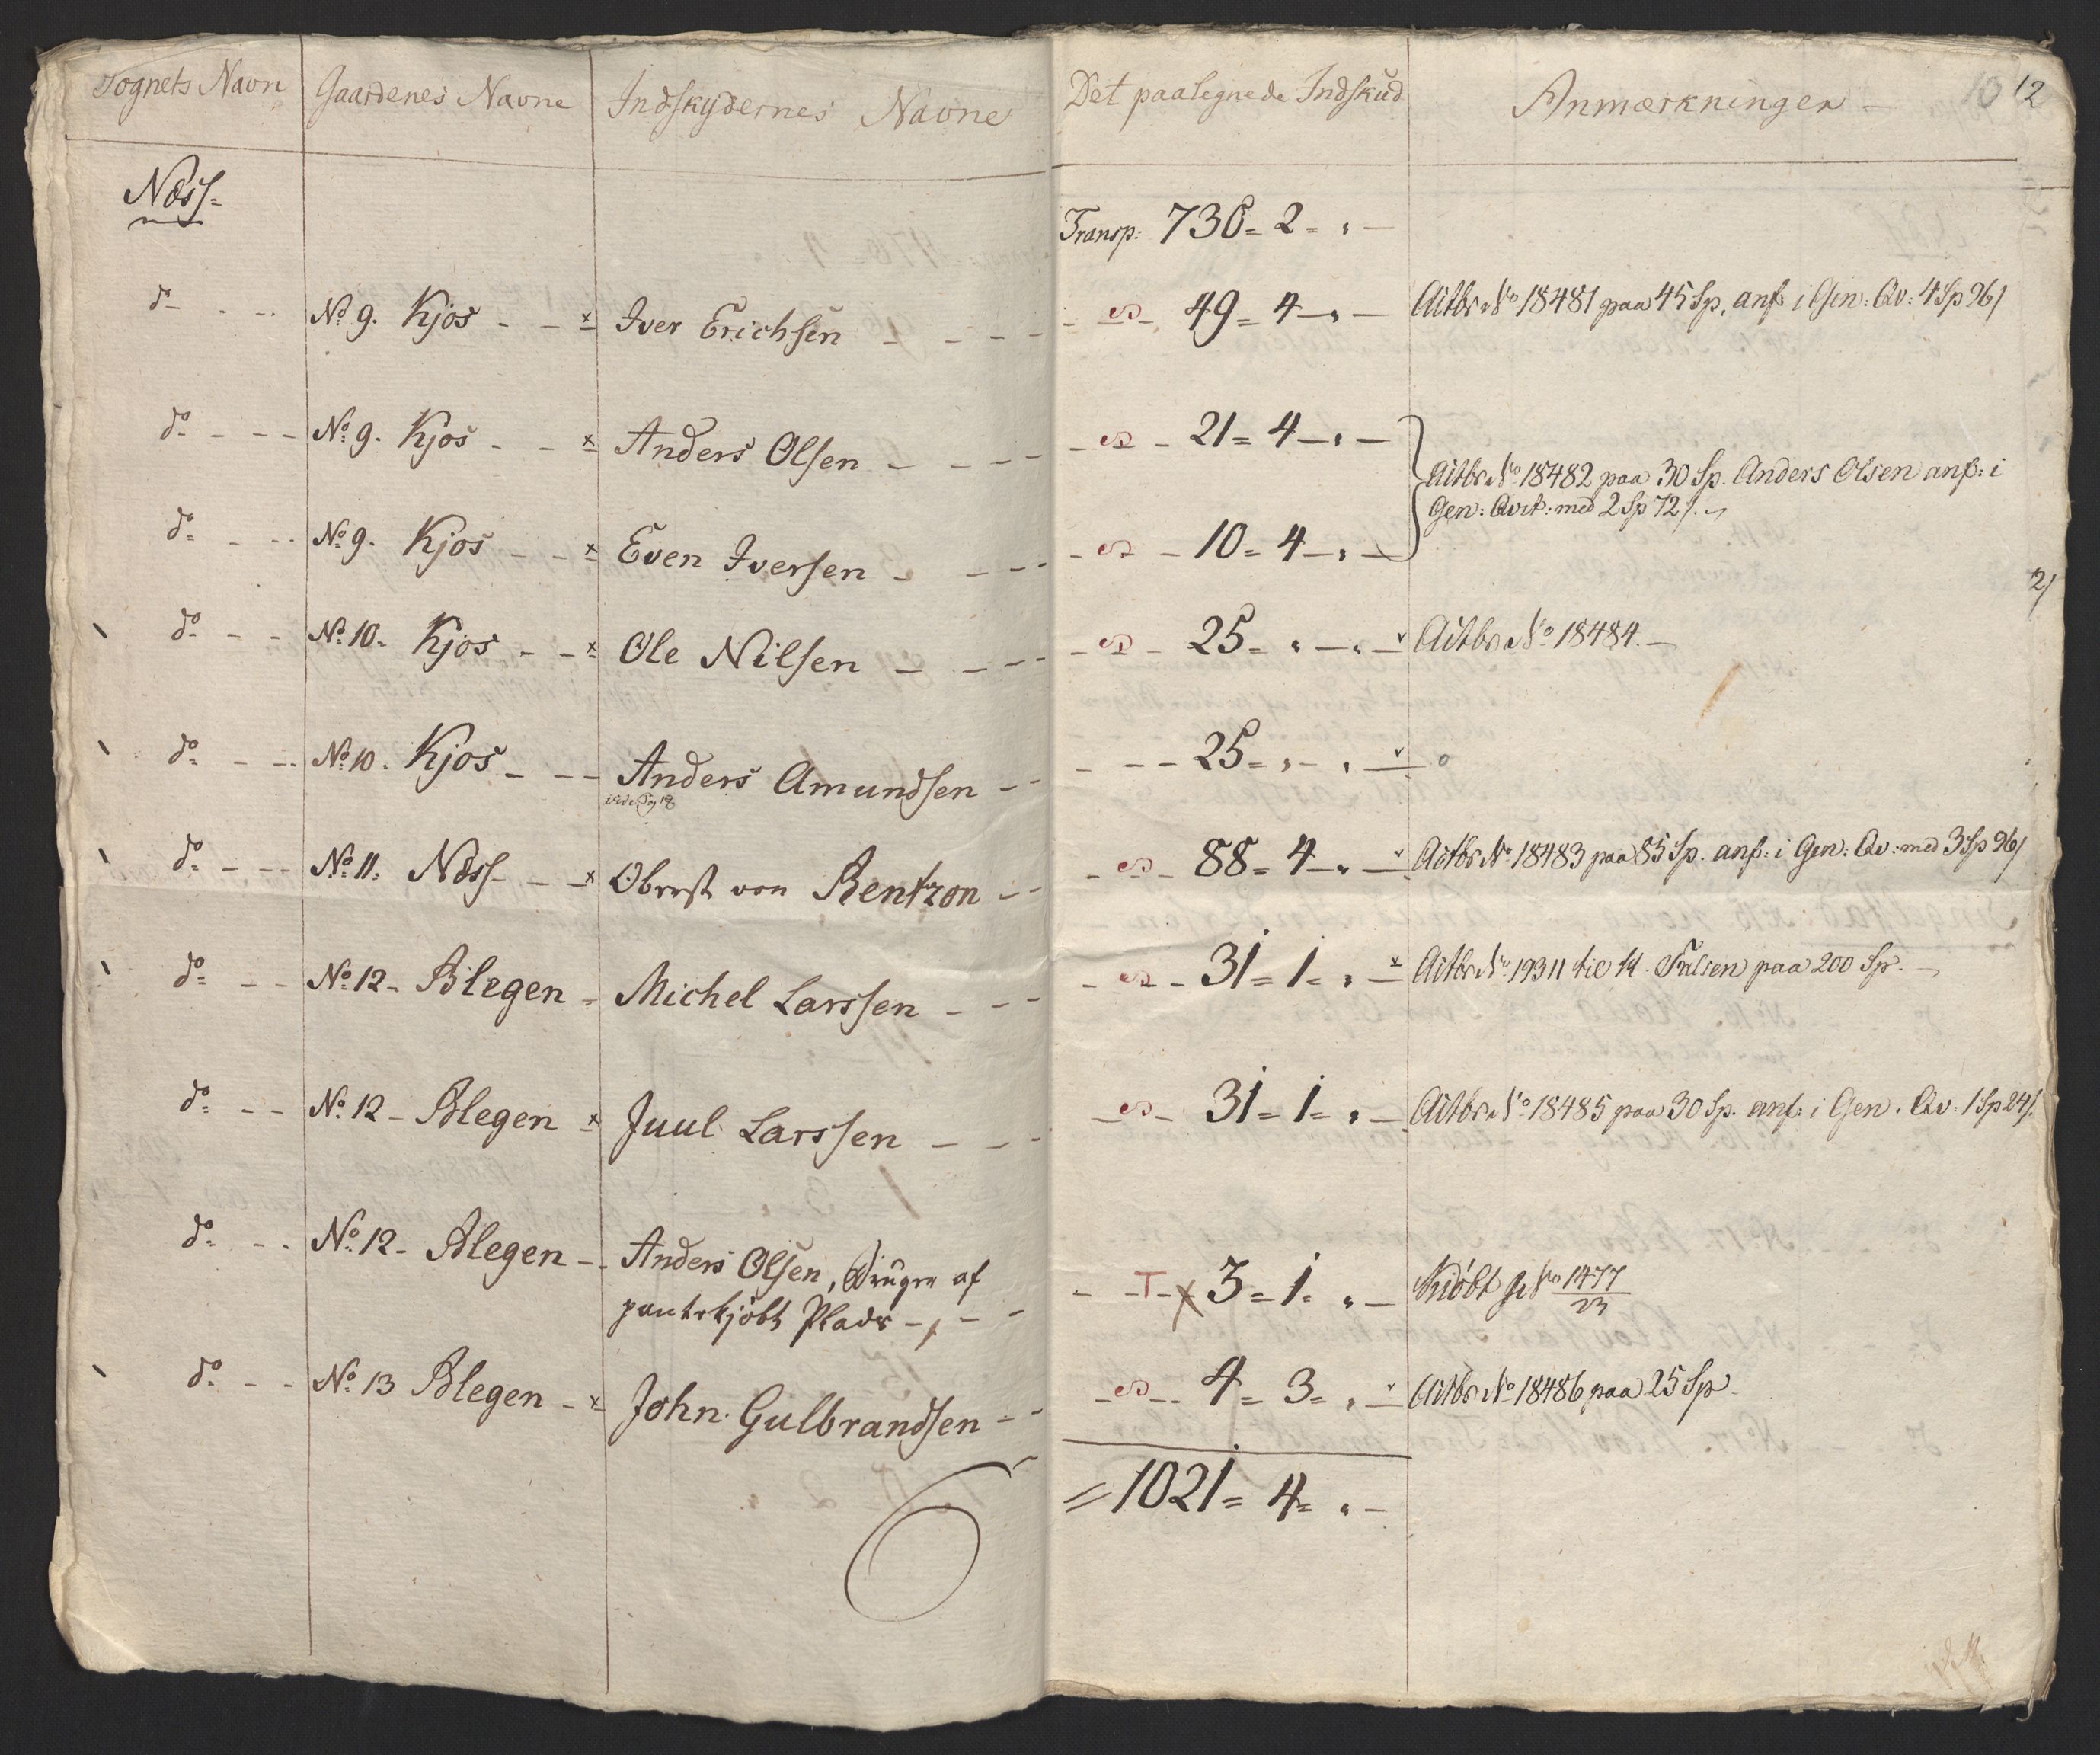 Sognets Navn | Gaardenes Navne | Indskydernes Navne | Det paalignede Indskud | Anmærkninger - 10 12
Næss=
Transp: 730= 2= " -
do - - - | No 9. Kjos - - x | Iver Erichsen - - - - | 49= 4 - " - | Actbr No 18481 paa 45 Sp. anf: i Gen: Qv: 4 Sp 96/
do - - - | No 9. Kjos - - x | Anders Olsen - - - - | 21= 4 - " -
Actbr No 18482 paa 30 Sp. Anders Olsen anf: i
Gen: Qvit: med 2 Sp 72/. -
do - - - | No 9. Kjos - - x | Even Iversen - - - - | 10= 4 - " -
2/
do - - | No 10. Kjos - - x | Ole Nilsen - - - - | 25= " - " - x | Actbr No 18484. -
do - - - | No 10. Kjos - - - | Anders Amundsen - - | - - - 25= " - " - x o
vide Pag 18
do - - - | No 11. Næss - - x | Oberst von Bentzon - - | 88= 4 - " - x | Actbr No 18483 paa 85 Sp. anf: i Gen: Qv: med 3 Sp 96/
do - - | No 12 - Blegen - | Michel Larssen - - - | 31= 1= " - x | Actbr No 19311 til 14. Falsen paa 200 Sp. -
do - - | No 12 - Blegen x | Juul Larssen - - - | 31= 1= " - | Actbr No 18485 paa 30 Sp. anf: i Gen. Qv: 1 Sp 24/.
do - - | No 12 - Blegen - - | Anders Olsen, Bruger af
pantekjöbt Plads - - - | - T - x 3= 1= " - | Kiöbt No 1477/23
do - - | No 13 Blegen - x | John Gulbrandsen - - | 4= 3= " - x | Actbr No 18486 paa 25 Sp -
= 1021= 4= " -